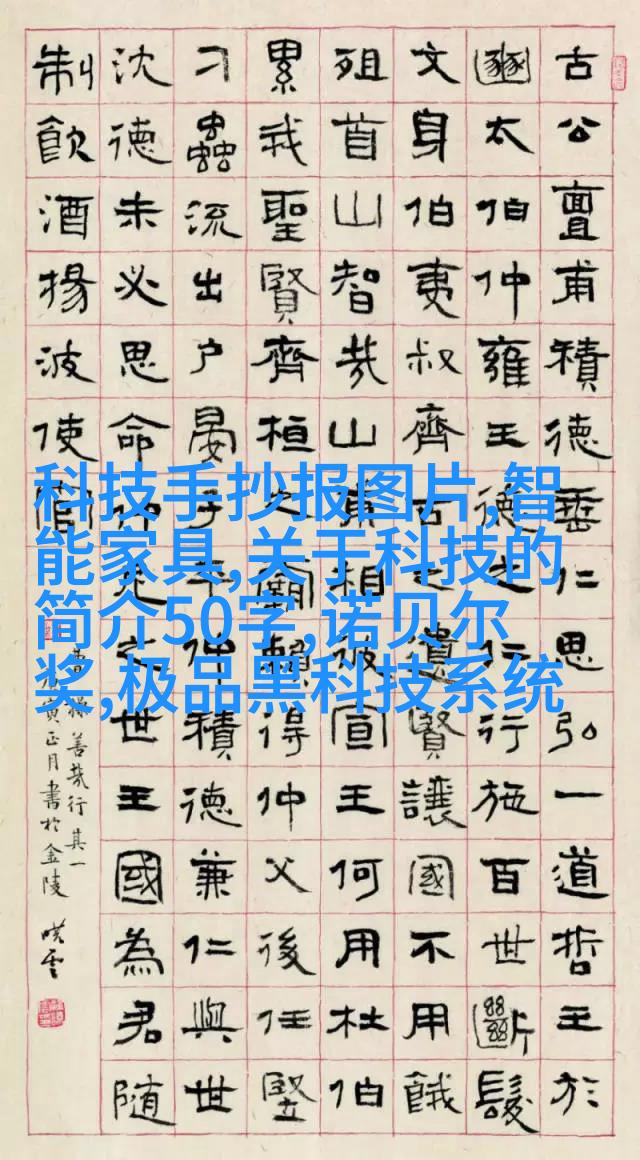 科技手抄报图片,智
能家具,关于科技的
简介50字,诺贝尔
奖,极品黑科技系统
古公亶甫積德垂仁思弘一道哲王於
豳太伯仲雍王德之仁行施百世斷髮
文身伯夷叔齊古之遺賢讓國不用餓
殂首山智哉山甫相彼宣王何用杜伯
累我聖賢齊桓之霸賴得仲父後任豎
刁蟲流出戶晏子平仲積德兼仁與世
沈德未必思命仲尼之世王國為君隨
制飲酒揚波使官
曹操善哉行其一
寅正月書於金陵